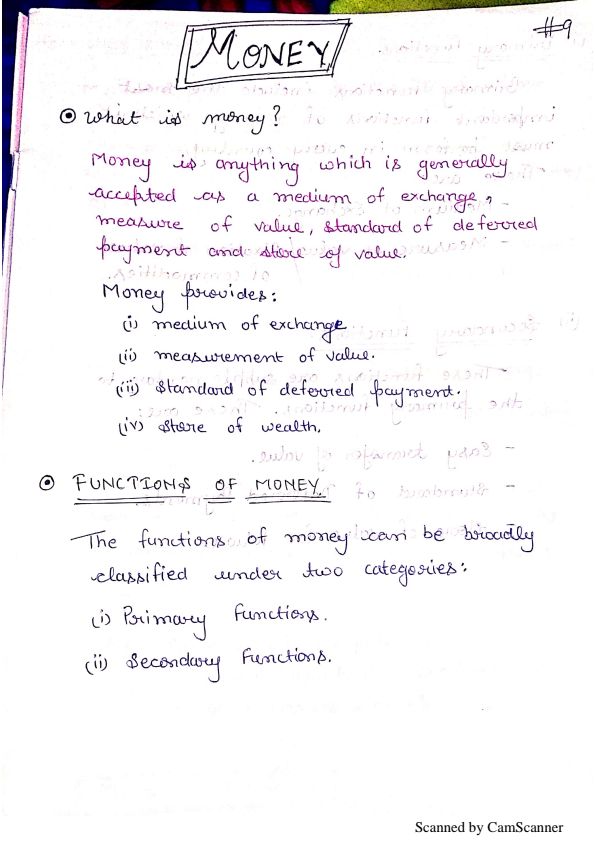 #9
MONEY
What is money?
Money is anything which is generally
accepted as a medium of exchange,
measure of value, standard of deferred
payment and store of value.
Money provides:
(i) medium of exchange
(ii) measurement of value.
(iii) standard of deferred payment.
(iv) store of wealth.
FUNCTIONS OF MONEY
The functions of money can be broadly
classified under two categories:
(i) Primary Functions.
(ii) Secondary Functions.
Scanned by CamScanner